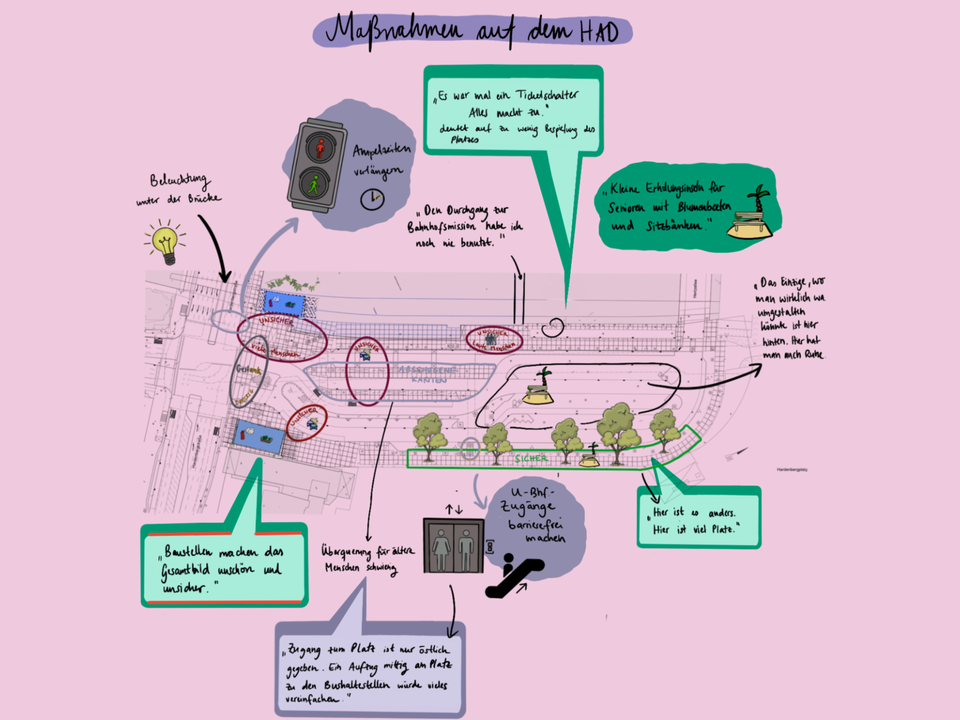 Maßnahmen auf dem HAD
„Es war mal ein Ticketschalter
Alles macht zu."
deutet auf zu wenig Bespielung des
Platzes
Ampelzeiten
verlängern
Beleuchtung
unter der Brücke
„Den Durchgang zur
Bahnhofsmission habe ich
noch nie benutzt."
„Kleine Erholungsinseln für
Senioren mit Blumenbeeten
und Sitzbänken."
„Das Einzige, wo
man wirklich was
umgestalten
könnte ist hier
hinten. Hier hat
man auch Ruhe
UNSICHER
viele Menschen
UNSICHER
UNSICHER
laute Menschen
Gestank
ABGEHOBENE
KANTEN
UNSICHER
SICHER
Hardenbergplatz
„Hier ist es anders.
Hier ist viel Platz."
U-Bhf.-
Zugänge
barrierefrei
machen
„Baustellen machen das
Gesamtbild unschön und
unsicher."
Überquerung für ältere
Menschen schwierig
„Zugang zum Platz ist nur östlich
gegeben. Ein Aufzug mittig am Platz
zu den Bushaltestellen würde vieles
vereinfachen."